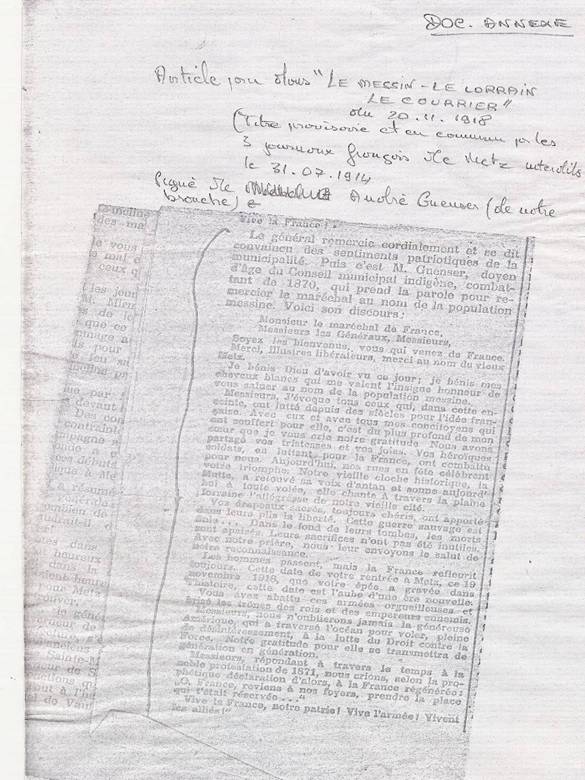 DOC. ANNEXE
Article paru dans "LE MESSIN - LE LORRAIN
LE COURRIER"
du 20.11.1918
(Titre provisoire et en commun par les
3 journaux français de Metz interdits
le 31.07.1914
Signé de André Guenser (de notre
branche)
Vive la France!»
Le général remercie cordialement et se dit
convaincu des sentiments patriotiques de la
municipalité. Puis c'est M. Guenser, doyen
d'âge du Conseil municipal indigène, combat-
tant de 1870, qui prend la parole pour re-
mercier le maréchal au nom de la population
messine. Voici son discours:
Monsieur le maréchal de France,
Messieurs les Généraux, Messieurs,
Soyez les bienvenus, vous qui venez de France.
Merci, illustres libérateurs, merci au nom du vieux
Metz.
Je bénis Dieu d'avoir vu ce jour; je bénis mes
cheveux blancs qui me valent l'insigne honneur de
vous saluer au nom de la population messine.
Messieurs, j'évoque tous ceux qui, dans cette en-
ceinte, ont lutté depuis des siècles pour l'idée fran-
çaise. Avec eux et avec tous mes concitoyens qui
ont souffert pour elle, c'est du plus profond de mon
cœur que je vous crie notre gratitude. Nous avons
partagé vos tristesses et vos joies. Vos héroïques
soldats, en luttant pour la France, ont combattu
pour nous. Aujourd'hui, nos rues en fête célèbrent
votre triomphe. Notre vieille cloche historique, la
Mutte, a retrouvé sa voix d'antan et sonne aujourd'
hui à toute volée, elle chante à travers la plaine
lorraine l'allégresse de notre vieille cité.
Vos drapeaux sacrés, toujours chéris, ont apporté
dans leurs plis la liberté. Cette guerre sauvage est
finie... Dans le fond de leurs tombes, les morts
sont apaisés. Leurs sacrifices n'ont pas été inutiles.
Avec notre prière, nous leur envoyons le salut de
notre reconnaissance.
Les hommes passent, mais la France refleurit
toujours. Cette date de votre rentrée à Metz, ce 19
novembre 1918, que votre épée a gravée dans
l'histoire, cette date est l'aube d'une ère nouvelle.
Vous avez abattu ces armées orgueilleuses et
brisé les trônes des rois et des empereurs ennemis.
Messieurs, nous n'oublierons jamais la généreuse
Amérique, qui a traversé l'océan pour voler, pleine
de désintéressement, à la lutte du Droit contre la
Force. Notre gratitude pour elle se transmettra de
génération en génération.
Messieurs, répondant à travers le temps à la
noble protestation de 1871, nous crions, selon la pro-
phétique déclaration d'alors, à la France régénérée:
«O, France, reviens à nos foyers, prendre la place
qui t'était réservée...»
Vive la France, notre patrie! Vive l'armée! Vivent
les alliés!"